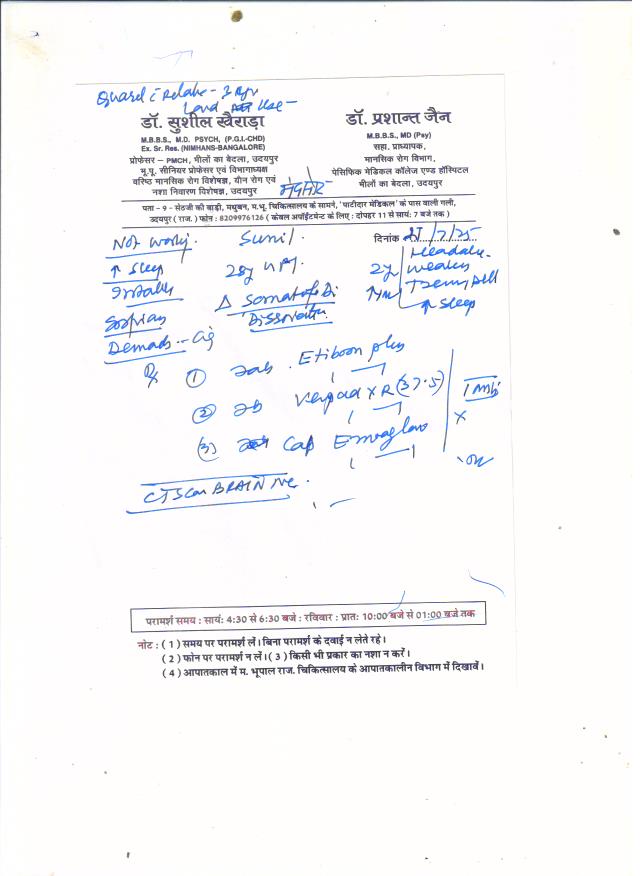 Quarrel c̄ Relative - 3 yr
Land Use -
डॉ. सुशील खैराड़ा
M.B.B.S., M.D. PSYCH, (P.G.I.-CHD)
Ex. Sr. Res. (NIMHANS-BANGALORE)
प्रोफेसर – PMCH, भीलों का बेदला, उदयपुर
भू.पू. सीनियर प्रोफेसर एवं विभागाध्यक्ष
वरिष्ठ मानसिक रोग विशेषज्ञ, यौन रोग एवं
नशा निवारण विशेषज्ञ, उदयपुर
डॉ. प्रशान्त जैन
M.B.B.S., MD (Psy)
सहा. प्राध्यापक,
मानसिक रोग विभाग,
पेसिफिक मेडिकल कॉलेज एण्ड हॉस्पिटल
भीलों का बेदला, उदयपुर
पता - 9 - सेठजी की बाड़ी, मधुबन, म.भू. चिकित्सालय के सामने, 'पाटीदार मेडिकल' के पास वाली गली,
उदयपुर ( राज. ) फोन : 8209976126 ( केवल अपॉईंटमेन्ट के लिए : दोपहर 11 से सायं: 7 बजे तक )
Not working. Sunil. दिनांक /7/25
↑ Sleep 28y 2y Headache
Weakness
↑ Sleep
Δ Somatoform Di
Dissociative
Demands - Cig
Rx ① Tab. Etiboon plus
② Tab XR (37.5) 1 month
③ Cap
CT Scan BRAIN
परामर्श समय : सायं: 4:30 से 6:30 बजे : रविवार : प्रात: 10:00 बजे से 01:00 बजे तक
नोट : ( 1 ) समय पर परामर्श लें। बिना परामर्श के दवाई न लेते रहे।
( 2 ) फोन पर परामर्श न लें। ( 3 ) किसी भी प्रकार का नशा न करें।
( 4 ) आपातकाल में म. भूपाल राज. चिकित्सालय के आपातकालीन विभाग में दिखावें।